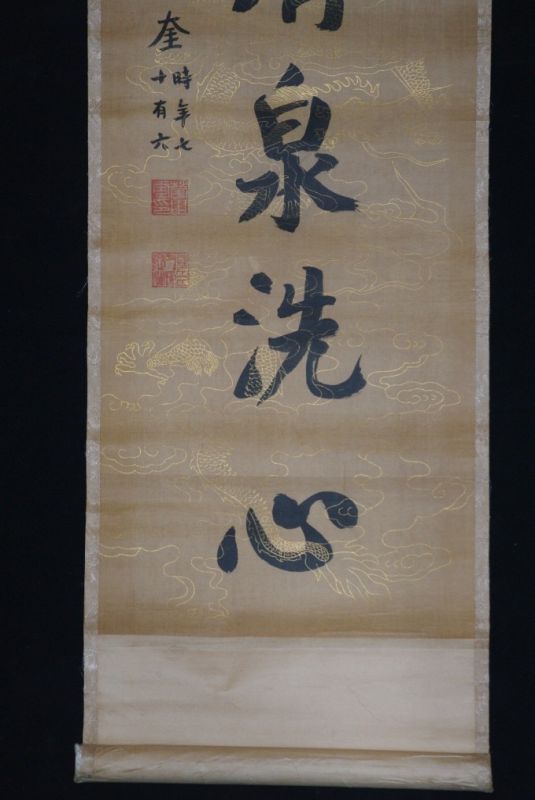 泉洗心
奎
時年七
十有六